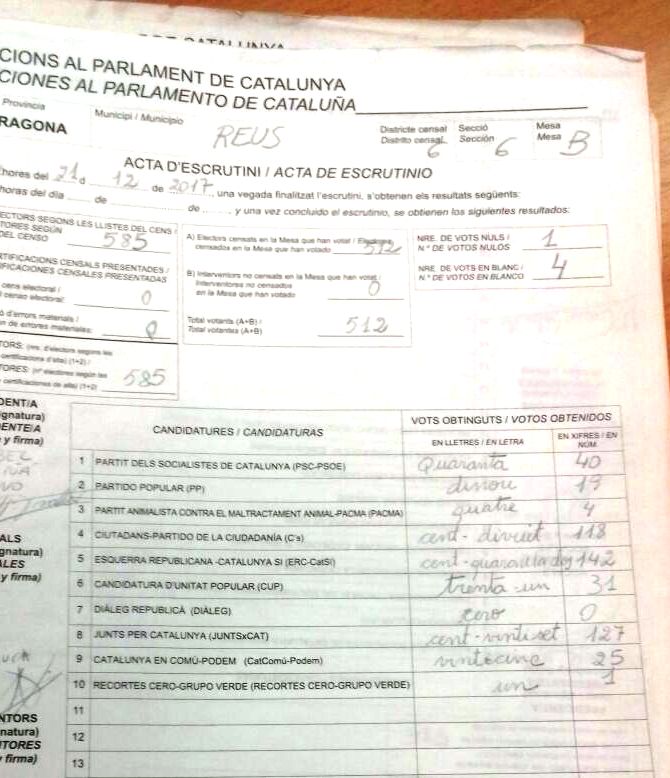 DE CATALUNYA
CIONS AL PARLAMENT DE CATALUNYA
CIONES AL PARLAMENTO DE CATALUÑA
Provincia
RAGONA
Municipi / Municipio
REUS
Districte censal
Distrito censal
6
Secció
Sección
6
Mesa
Mesa
B
ACTA D'ESCRUTINI / ACTA DE ESCRUTINIO
hores del 21 d 12 de 2017, una vegada finalitzat l'escrutini, s'obtenen els resultats següents:
horas del día ...... de ...... de ......, y una vez concluido el escrutinio, se obtienen los siguientes resultados:
ECTORS SEGONS LES LLISTES DEL CENS /
TORES SEGÚN
DEL CENSO
585
RTIFICACIONS CENSALS PRESENTADES /
IFICACIONES CENSALES PRESENTADAS
cens electoral /
censo electoral:
0
ó d'errors materials /
n de errores materiales:
0
TORS: (nre. d'electors segons les
certificacions d'alta) (1+2) /
TORES: (nº electores según las
certificaciones de alta) (1+2)
585
A) Electors censats en la Mesa que han votat / Electores
censados en la Mesa que han votado
512
B) Interventors no censats en la Mesa que han votat /
Interventores no censados
en la Mesa que han votado
0
Total votants (A+B) /
Total votantes (A+B)
512
NRE. DE VOTS NULS /
N.º DE VOTOS NULOS
1
NRE. DE VOTS EN BLANC /
N.º DE VOTOS EN BLANCO
4
DENT/A
gnatura)
DENTE/A
y firma)
ALS
gnatura)
ALES
y firma)
NTORS
natura)
TORES
y firma)
CANDIDATURES / CANDIDATURAS
VOTS OBTINGUTS / VOTOS OBTENIDOS
EN LLETRES / EN LETRA
EN XIFRES / EN NÚM.
1 PARTIT DELS SOCIALISTES DE CATALUNYA (PSC-PSOE) Quaranta 40
2 PARTIDO POPULAR (PP) dinou 19
3 PARTIT ANIMALISTA CONTRA EL MALTRACTAMENT ANIMAL-PACMA (PACMA) quatre 4
4 CIUTADANS-PARTIDO DE LA CIUDADANÍA (C's) cent-divuit 118
5 ESQUERRA REPUBLICANA -CATALUNYA SI (ERC-CatSí) cent-quaranta dos 142
6 CANDIDATURA D'UNITAT POPULAR (CUP) trenta-un 31
7 DIÀLEG REPUBLICÀ (DIÀLEG) cero 0
8 JUNTS PER CATALUNYA (JUNTSxCAT) cent-vintiset 127
9 CATALUNYA EN COMÚ-PODEM (CatComú-Podem) vinticinc 25
10 RECORTES CERO-GRUPO VERDE (RECORTES CERO-GRUPO VERDE) un 1
11
12
13